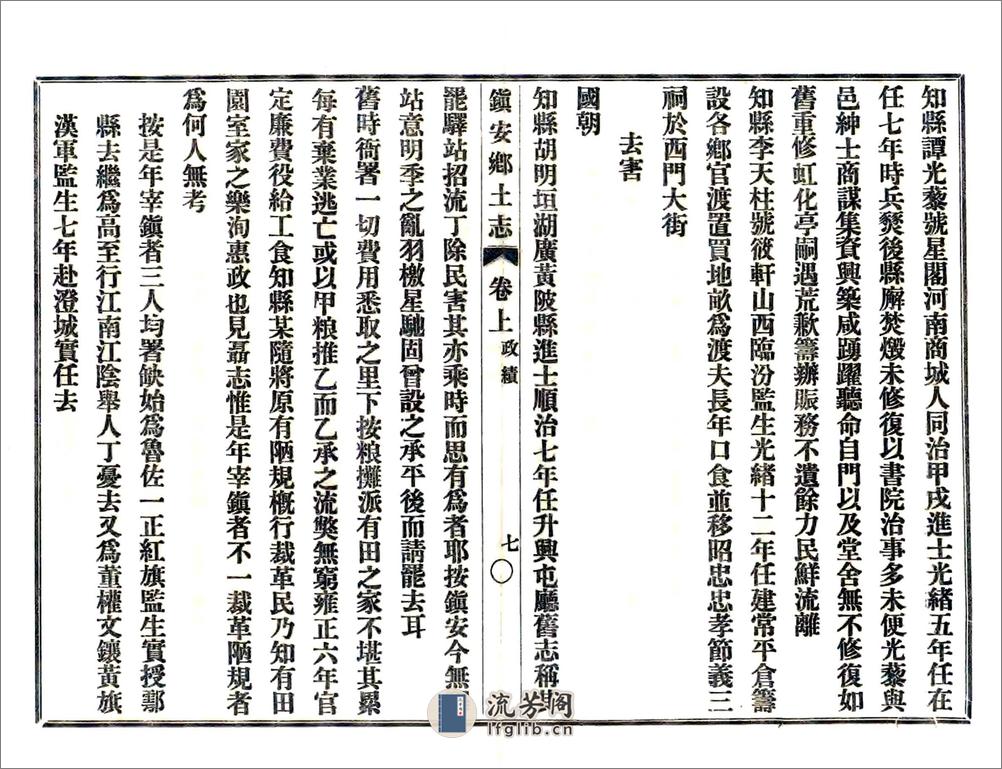 知縣譚光藜號星閣河南商城人同治甲戌進士光緒五年任在
任七年時兵燹後縣廨焚燬未修復以書院治事多未便光藜與
邑紳士商謀集資興築咸踴躍聽命自門以及堂舍無不修復如
舊重修虹化亭嗣遇荒歉籌辦賑務不遺餘力民鮮流離
知縣李天柱號筱軒山西臨汾監生光緒十二年任建常平倉籌
設各鄉官渡置買地畝為渡夫長年口食並移昭忠忠孝節義三
祠於西門大街
去害
國朝
知縣胡明垣湖廣黃陂縣進士順治七年任升興屯廳舊志稱其
鎮安鄉土志 卷上 政績 七
罷驛站招流丁除民害其亦乘時而思有為者耶按鎮安今無
站意明季之亂羽檄星馳固曾設之承平後而請罷去耳
舊時衙署一切費用悉取之里下按粮攤派有田之家不堪其累
每有棄業逃亡或以甲粮推乙而乙承之流獘無窮雍正六年官
定廉費役給工食知縣某隨將原有陋規概行裁革民乃知有田
園室家之樂洵惠政也見聶志惟是年宰鎮者不一裁革陋規者
為何人無考
按是年宰鎮者三人均署缺始為魯佐一正紅旗監生實授鄠
縣去繼為高至行江南江陰舉人丁憂去又為董權文鑲黃旗
漢軍監生七年赴澄城實任去
流芳閣
lfglib.cn